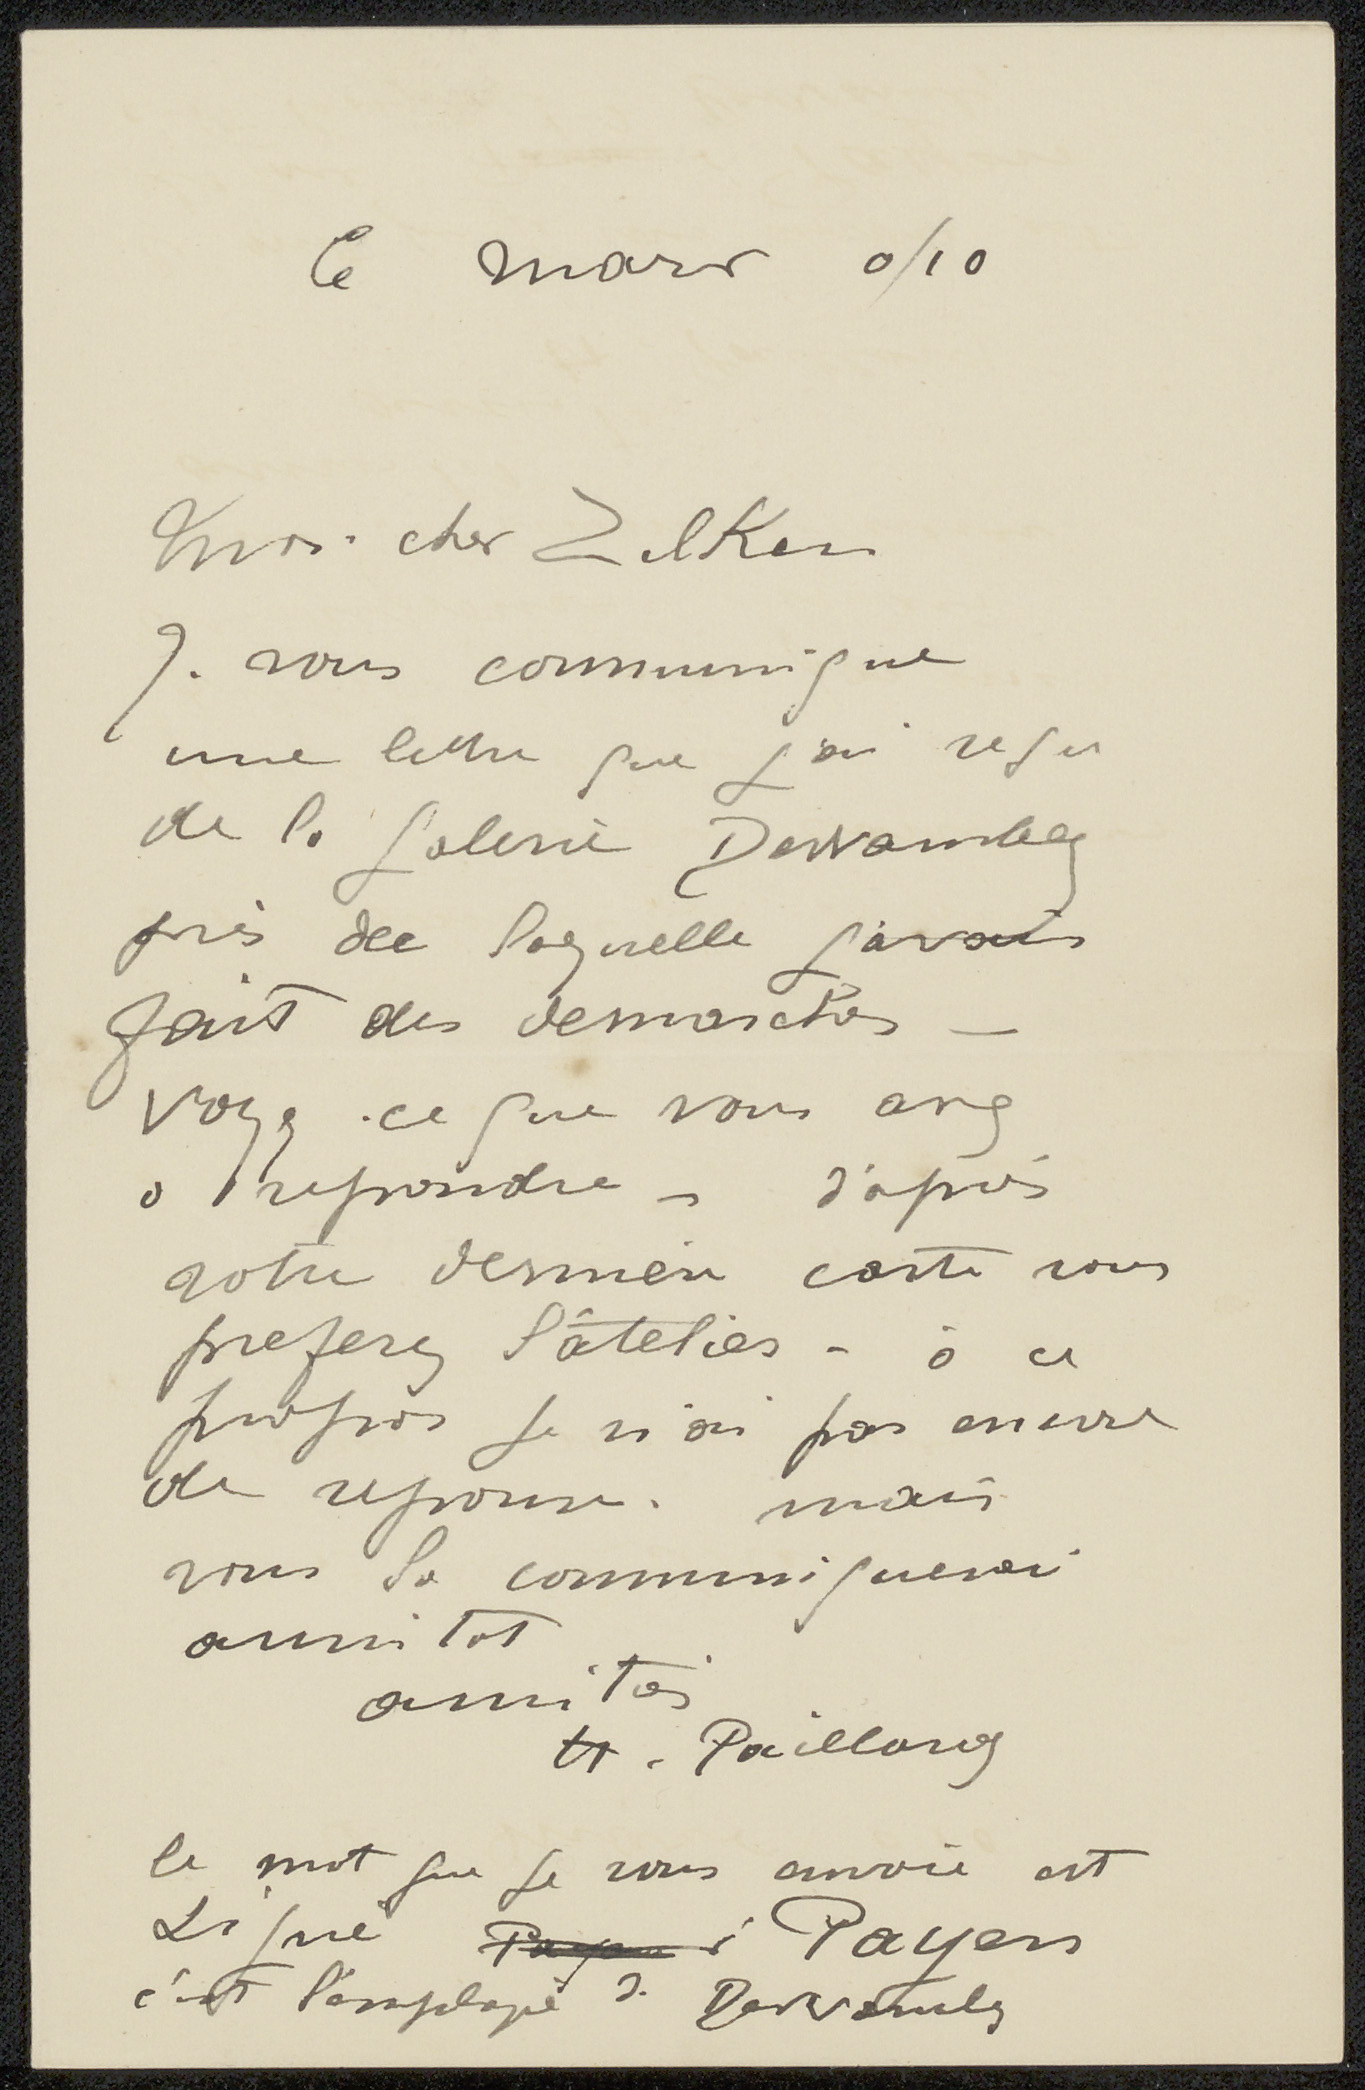 6 mars 0/10
Mon cher Zilken
Je vous communique
une lettre que j'ai reçu
de la galerie Devambez
près de laquelle j'avais
fait des demarches —
voyez ce que vous avez
a repondre — d'après
votre derniere carte vous
preferez l'âtelier – à ce
propos je n'ai pas encore
de reponse. mais
vous la communiquerai
aussitot
amities
H. Paillard
le mot que je vous envoie est
signé Payen
c'est l'employé de Devambez